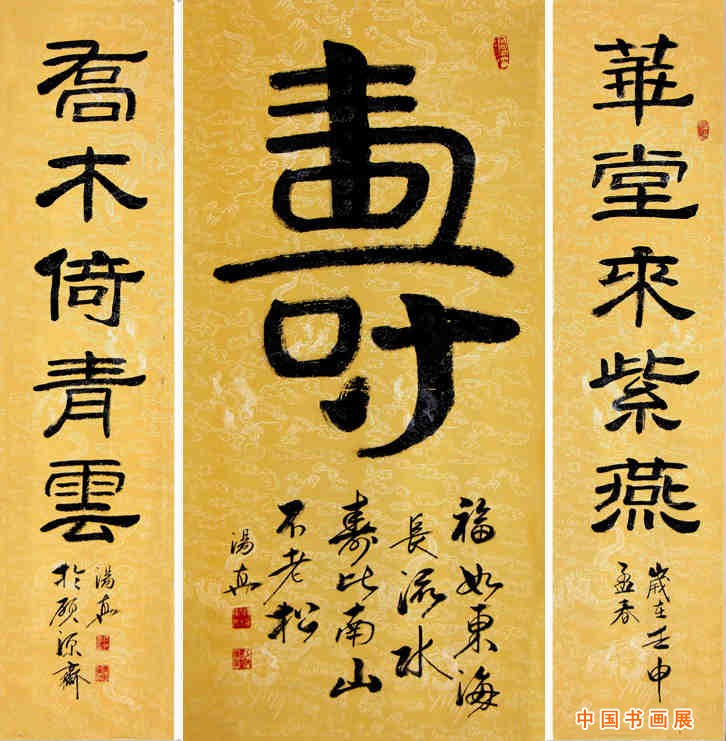 華堂來紫燕
歲在壬申
孟春
壽
福如東海
長流水
壽比南山
不老松
湯真
喬木倚青雲
湯真
於源齋
中国书画展